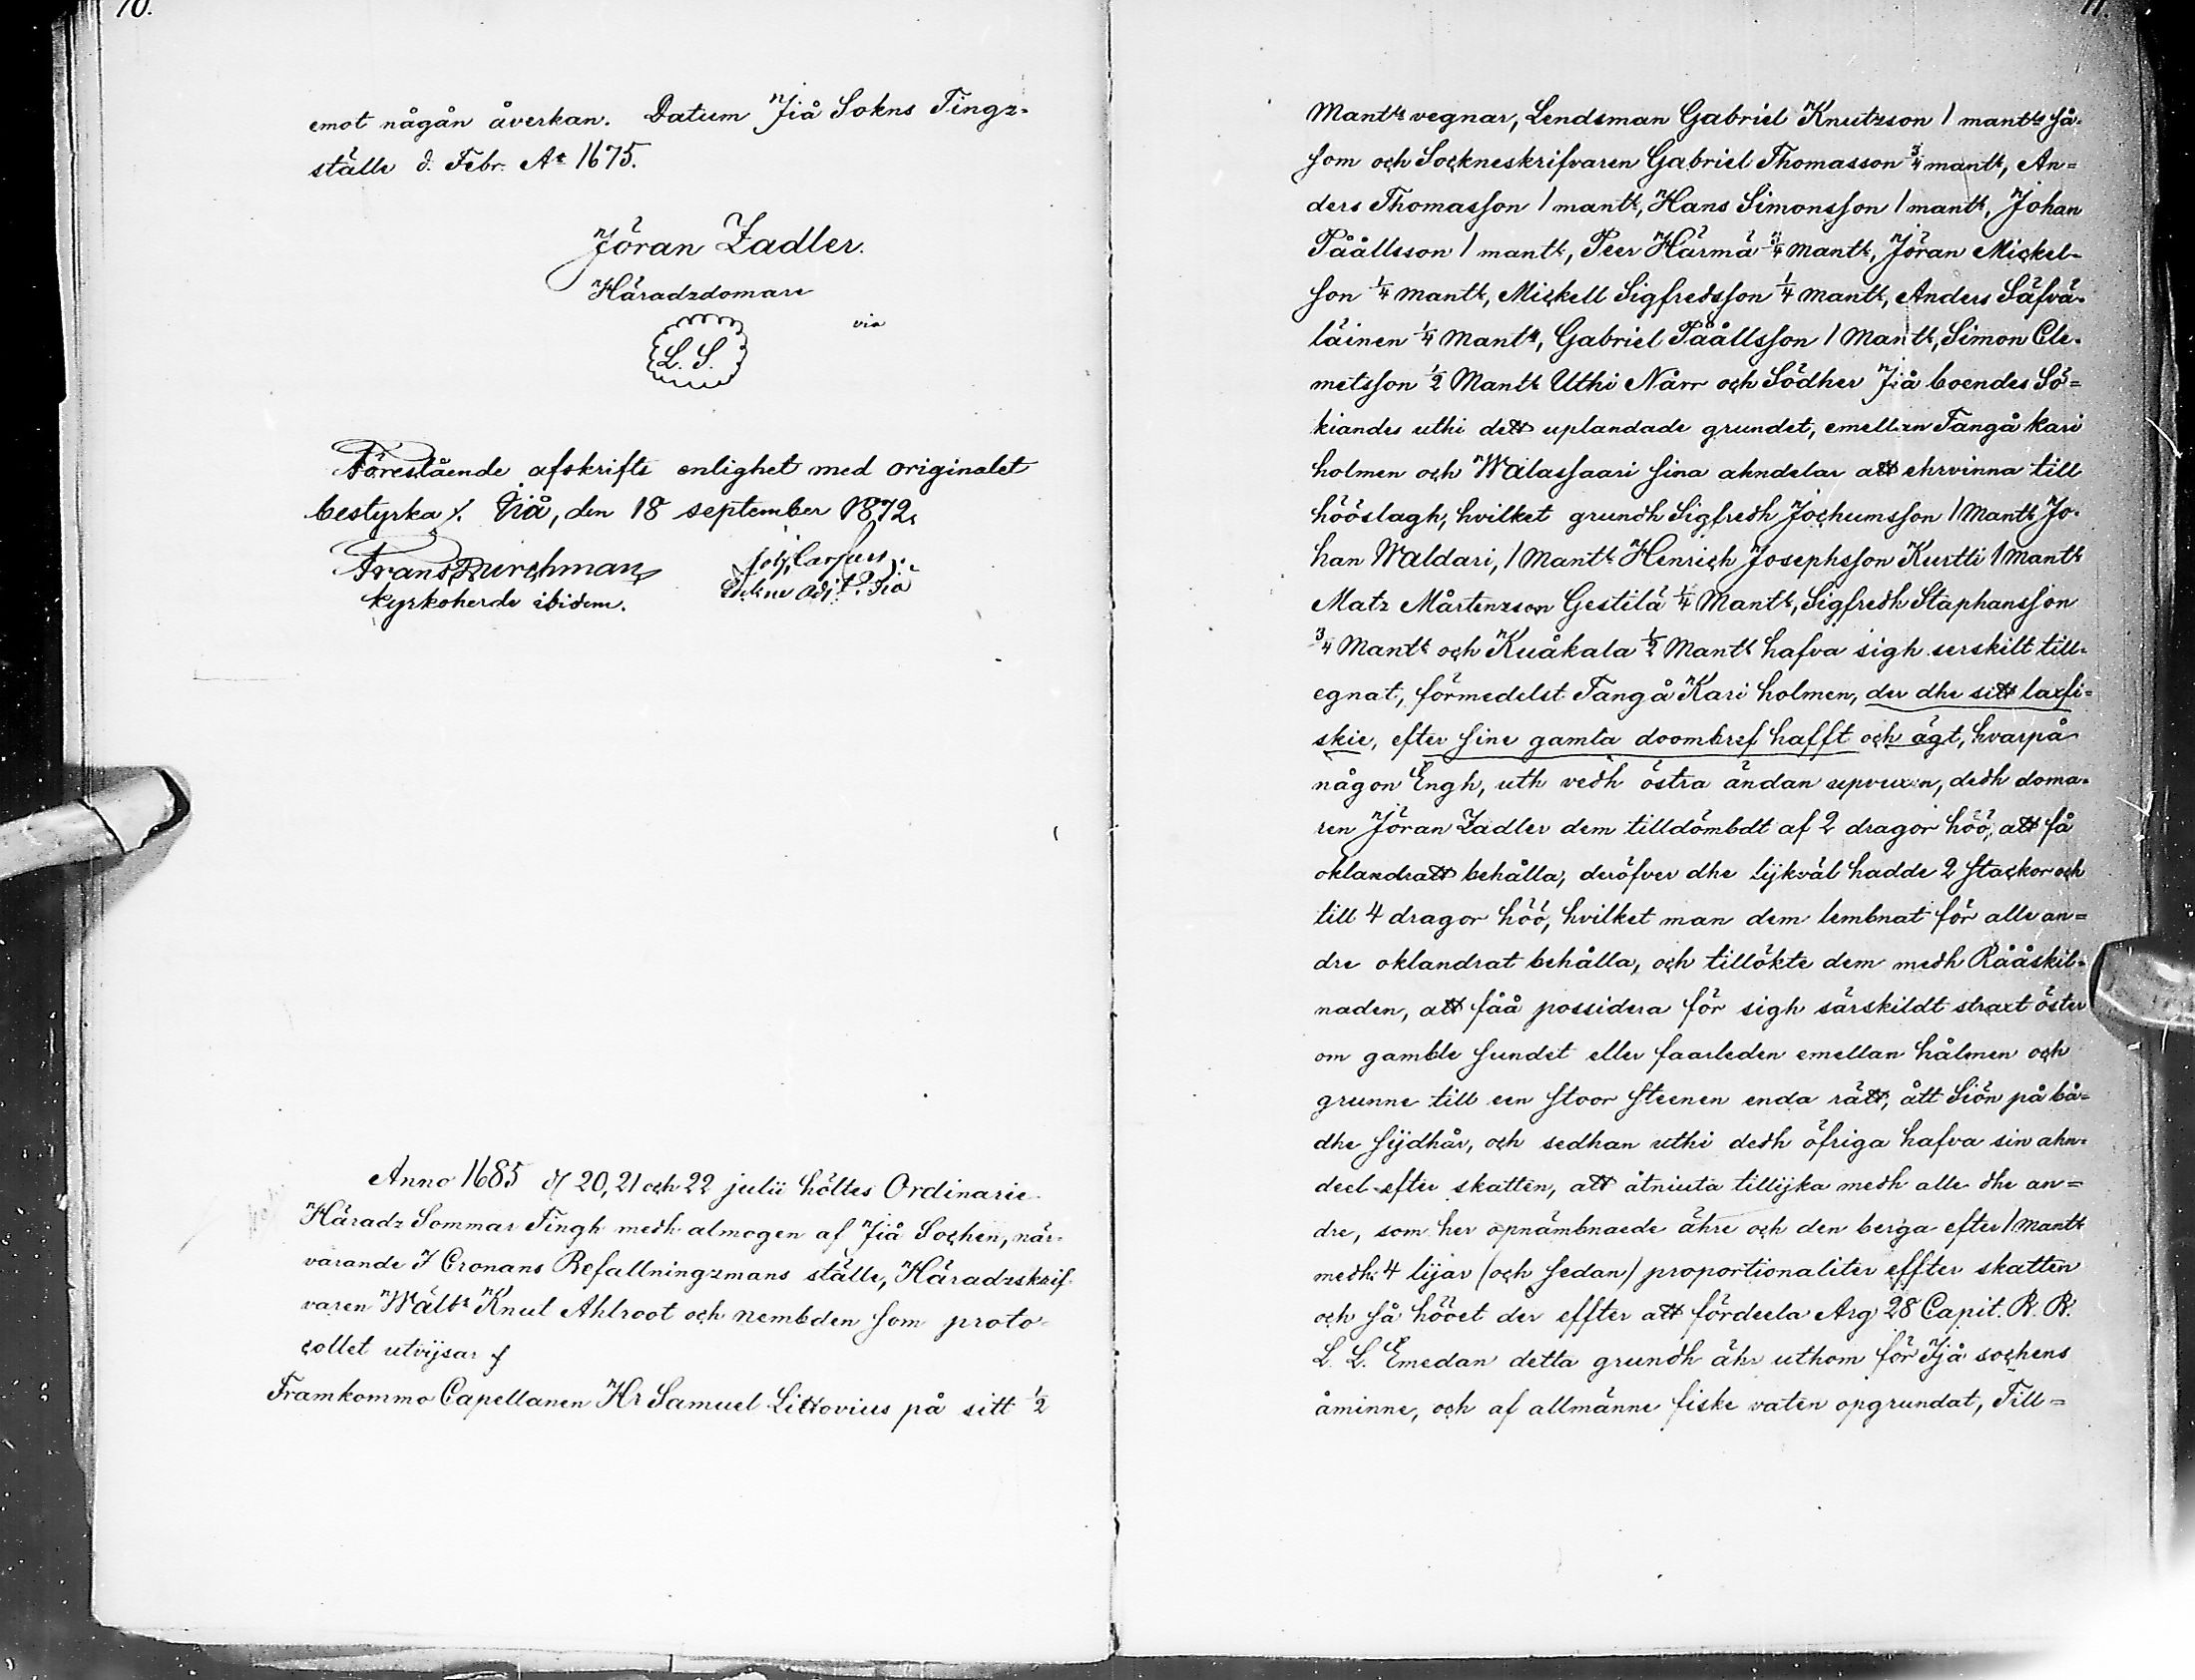 10.
emot någån åverkan. Datum Jiå Sokns Tingz-
ställe d. Febr. Ao 1675.
Jöran Zadler.
Häradzdomare
via
L. S.
Förestående afskrifts enlighet med originalet
bestyrka /. Iiå, den 18 september 1872.
Frans Durchman
kyrkoherde ibidem.
Anno 1685 d 20, 21 och 22 julii höltes Ordinarie
Häradz Sommar Tingh medh almogen af Jiå Sochen, när-
varande J Cronans Befallningzmans ställe, Häradzskrif-
varen Wälbr Knut Ahlroot och nembden som proto-
collet utvijsar
Framkommo Capellanen Hr Samuel Littovius på sitt 1/2
11.
Mantls vegnar, Lendsman Gabriel Knutzson 1 mantls så-
som och Sockneskrifvaren Gabriel Thomasson 3/4 mantl, An=
ders Thomasson 1 mantl, Hans Simonsson 1 mantl, Johan
Påållsson 1 mantl, Peer Härmä 3/4 mantl, Jöran Mickel-
son 1/4 mantl, Mickell Sigfredsson 1/4 mantl, Anders Säfvä-
läinen 1/4 Mantl, Gabriel Påållsson 1 Mantl, Simon Cle-
metsson 1/2 Mantl Uthi Nårr och Södher Jiå boendes Sö=
kiandes uthi dett uplandade grundet, emellan Tangå kari
holmen och Walassaari sina ahndelar att ehrvinna till
hööslagh, hvilket grundh Sigfredh Jochumsson 1 Mantl Jo-
han Waldari, 1 Mantl Henrich Josephsson Kurtti 1 Mantl
Matz Mårtenzson Gestilä 1/4 Mantl, Sigfredh Staphansson
3/4 Mantl och Kuåkala 1/2 Mantl hafva sigh serskilt till-
egnat, förmedelst Tangå Kari holmen, der dhe sitt laxfi-
skie, efter sine gamla doombref hafft och ägt, hvarpå
någon Engh, uth vedh östra ändan upvuxen, dedh doma-
ren Jöran Zadler dem tilldömbdt af 2 dragor höö, att få
oklandratt behålla, deröfver dhe lijkväl hadde 2 stackor och
till 4 dragor höö, hvilket man dem lembnat för alle an=
dre oklandrat behålla, och tillökte dem medh Rååskil-
naden, att fåå possidera för sigh särskildt straxt öster
om gamble sundet eller faarleden emellan hålmen och
grunne till een stoor steenen enda rätt, ått Siön på bå-
dhe sijdhår, och sedhan uthi dedh öfriga hafva sin ahn-
deel efter skatten, att åtniuta tillijka medh alle dhe an=
dre, som her opnämbnaede ähre och den berga efter 1 Mantl
medh 4 lijar (och sedan) proportionaliter effter skatten
och så hööet der effter att fördeela Arg 28 Capit. B. B.
L. L. Emedan detta grundh ähr uthom för Jjå sochens
åminne, och af allmänne fiske vaten opgrundat, Till=